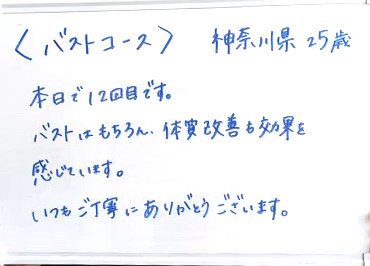 〈バストコース〉 神奈川県 25歳
本日で12回目です。
バストはもちろん、体質改善も効果を
感じています。
いつもご丁寧にありがとうございます。